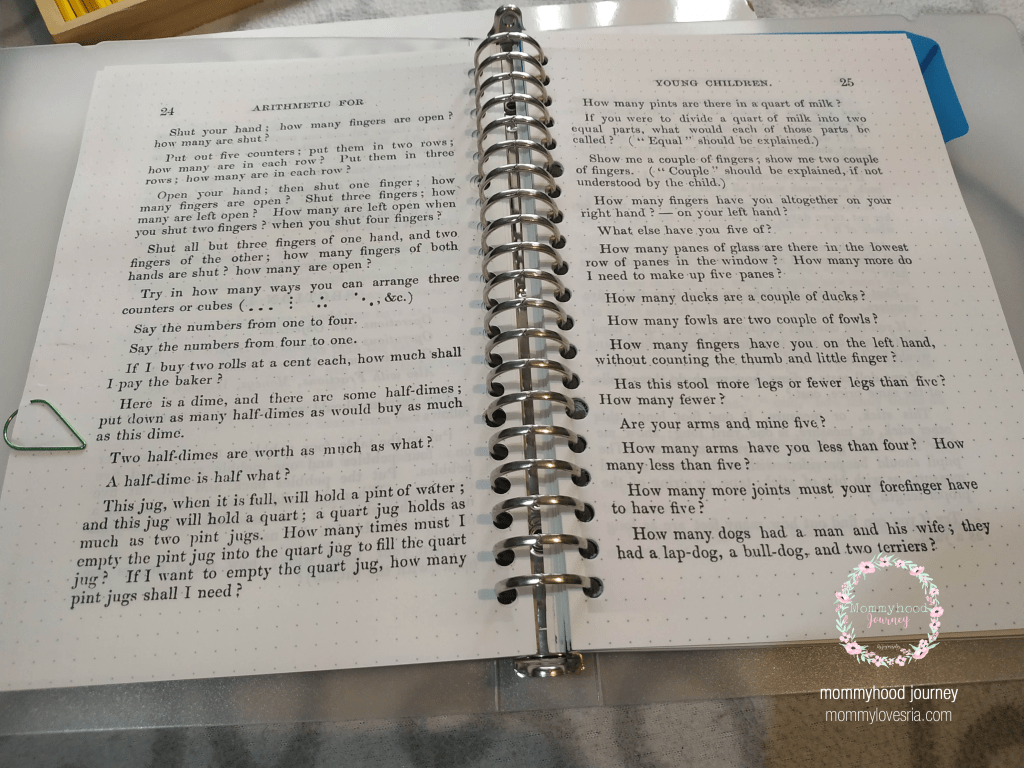 24 ARITHMETIC FOR
Shut your hand; how many fingers are open?
how many are shut?
Put out five counters; put them in two rows;
how many are in each row? Put them in three
rows; how many are in each row?
Open your hand; then shut one finger; how
many fingers are open? Shut three fingers; how
many are left open? How many are left open when
you shut two fingers? when you shut four fingers?
Shut all but three fingers of one hand, and two
fingers of the other; how many fingers of both
hands are shut? how many are open?
Try in how many ways you can arrange three
counters or cubes (... ⋮ ∴ ⋱, &c.)
Say the numbers from one to four.
Say the numbers from four to one.
If I buy two rolls at a cent each, how much shall
I pay the baker?
Here is a dime, and there are some half-dimes;
put down as many half-dimes as would buy as much
as this dime.
Two half-dimes are worth as much as what?
A half-dime is half what?
This jug, when it is full, will hold a pint of water;
and this jug will hold a quart; a quart jug holds as
much as two pint jugs. How many times must I
empty the pint jug into the quart jug to fill the quart
jug? If I want to empty the quart jug, how many
pint jugs shall I need?
YOUNG CHILDREN. 25
How many pints are there in a quart of milk?
If you were to divide a quart of milk into two
equal parts, what would each of those parts be
called? ("Equal" should be explained.)
Show me a couple of fingers; show me two couple
of fingers. ("Couple" should be explained, if not
understood by the child.)
How many fingers have you altogether on your
right hand? — on your left hand?
What else have you five of?
How many panes of glass are there in the lowest
row of panes in the window? How many more do
I need to make up five panes?
How many ducks are a couple of ducks?
How many fowls are two couple of fowls?
How many fingers have you on the left hand,
without counting the thumb and little finger?
Has this stool more legs or fewer legs than five?
How many fewer?
Are your arms and mine five?
How many arms have you less than four? How
many less than five?
How many more joints must your forefinger have
to have five?
How many dogs had a man and his wife; they
had a lap-dog, a bull-dog, and two terriers?
Mommyhood
Journey
mommyhood journey
mommylovesria.com